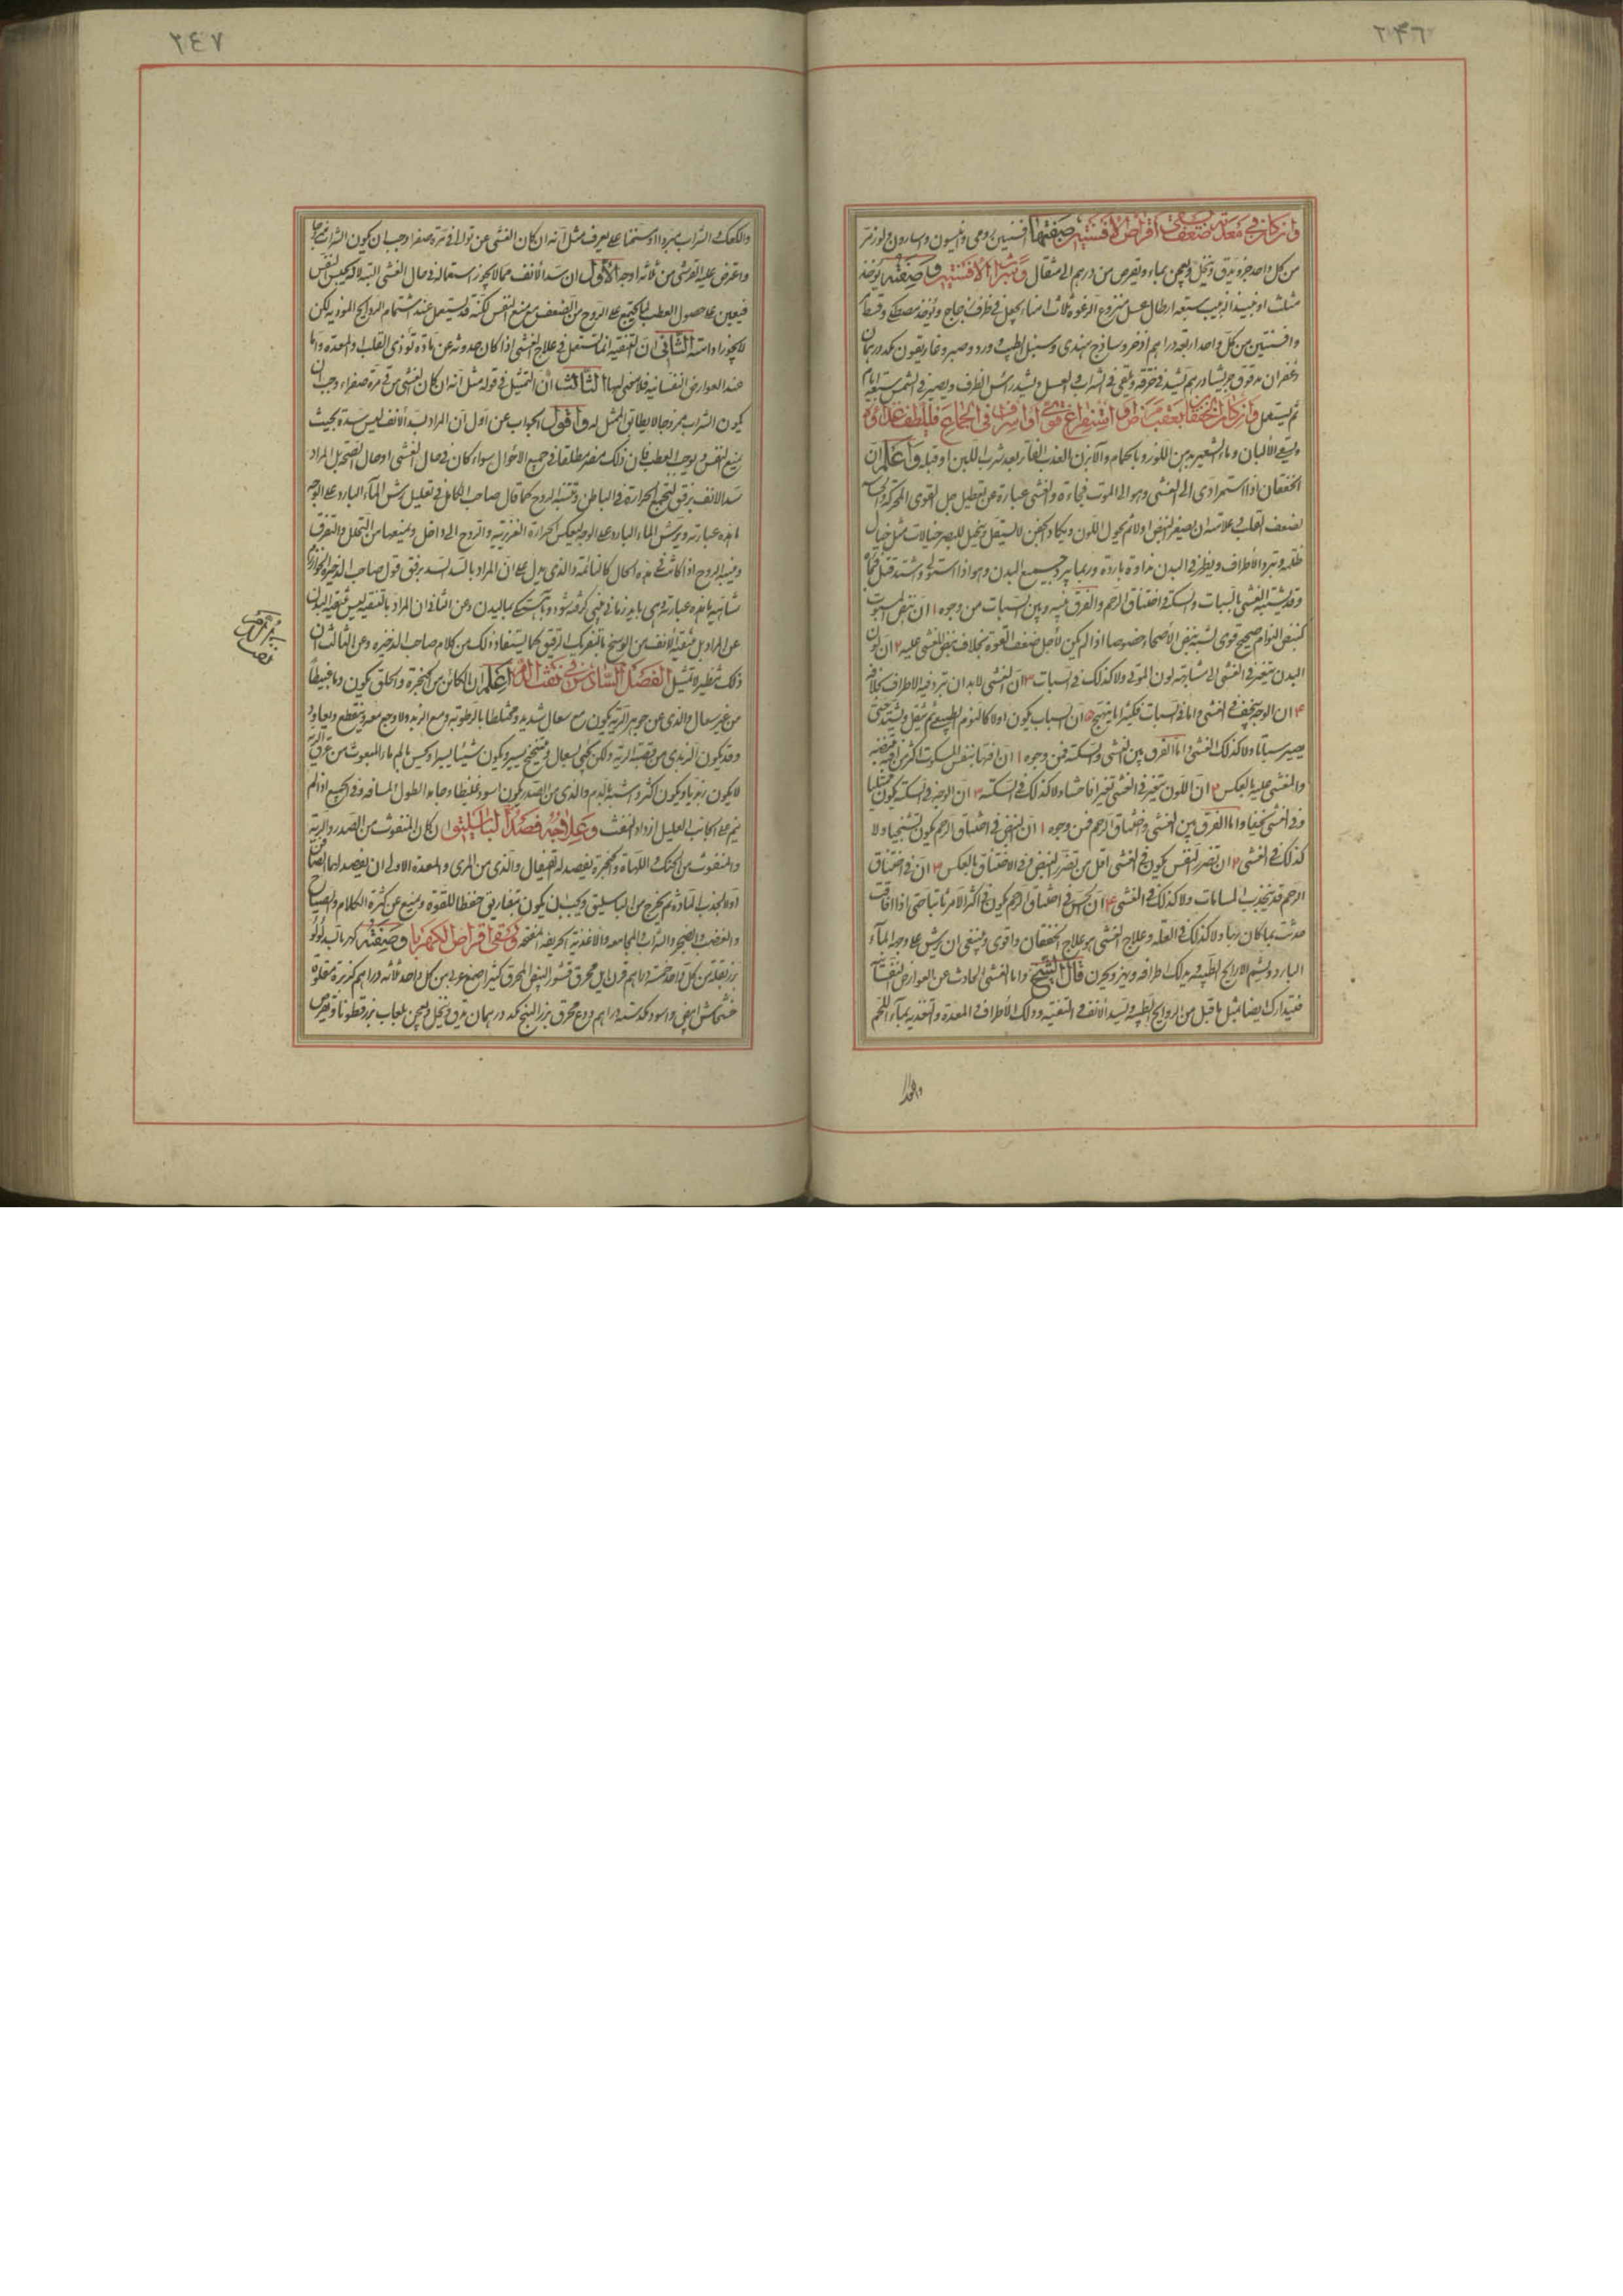 ٢٤٦
وان كان في معدته ضعف سقي اقراص الافسنتين صفتها افسنتين رومي وانيسون واسارون ولوز مر
من كل واحد جزء يدق وينخل ويعجن بماء ويقرص من درهم الى مثقال وشراب الافسنتين وصفته يؤخذ
مثلث او نبيذ الزبيب سبعة ارطال عسل منزوع الرغوة ثلاث امناء يجعل في ظرف زجاج ويؤخذ مصطكي
وافسنتين من كل واحد اربعة دراهم اذخر وساذج هندي وسنبل الطيب وورد وصبر وغاريقون مكد درهمان
زعفران مدقوق جريشا درهم يشد في خرقة ويلقى في الشراب والعسل ويشد رأس الظرف ويصير في الشمس سبعة ايام
ثم يستعمل وان كان الخفقان بعقب مرض او استفراغ قوي او اسراف في الجماع فليلطف غذاؤه
ويسقى الالبان وماء الشعير بدهن اللوز وبالحمام والآبزن العذب الفاتر بعد شرب اللبن او قبله واعلم ان
الخفقان اذا استمر ادى الى الغشي وهو الى الموت فجاءة والغشي عبارة عن تعطيل جل القوى المحركة والحساسة
لضعف القلب وعلامته ان يصغر النبض اولا ثم يحول اللون ويكاد الجفن لا يستقل ويخيل للبصر خيالات مثل خيال
ظلمة وتبرد الاطراف ويظهر في البدن نداوة باردة وربما يبرد جميع البدن وهو اذا استولى واشتد قتل فجأة
وقد يشتبه الغشي بالسبات والسكتة واختناق الرحم والفرق بينه وبين السبات من وجوه ١ ان نبض المسبوت
كنبض النوام صحيح قوي لشبه نبض الاصحاء خصوصا اذا لم يكن لاجل ضعف القوة بخلاف نبض المغشي عليه ٢ ان لون
البدن يتغير في الغشي الى مشابهة لون الموتى ولا كذلك في السبات ٣ ان الغشي لابد ان تبرد فيه الاطراف بخلافه
٤ ان الوجه ينحف في الغشي واما في السبات فكثيرا ما يتهيج ٥ ان السبات يكون اولا كالنوم الطبيعي ثم يثقل ويشتد حتى
يصير سباتا ولا كذلك الغشي واما الفرق بين الغشي والسكتة فمن وجوه ١ ان
والمغشي عليه بالعكس ٢ ان اللون يتغير في الغشي تغيرا فاحشا ولا كذلك في السكتة ٣ ان الوجه في السكتة يكون ممتليا
وفي الغشي نحيفا واما الفرق بين الغشي واختناق الرحم فمن وجوه ١ ان النبض في اختناق الرحم يكون تشنجيا ولا
كذلك في الغشي ٢ ان تضرر النفس يكون في الغشي اقل من تضرر النبض وفي الاختناق بالعكس ٣ ان في اختناق
الرحم قد ينجذب السامات ولا كذلك في الغشي ٤ ان الحس في اختناق الرحم يكون في اكثر الامر ثابتا حتى اذا افاقت
حدثت بما كان بها ولا كذلك في العلة وعلاج الغشي هو علاج الخفقان واقوى وينبغي ان يرش على وجهه الماء
البارد ويشم الاراييح الطيبة ويدلك اطرافه ويهز ويحرك قال الشيخ واما الغشي الحادث عن العوارض النفسانية
فيتدارك ايضا بمثل ما قيل من الروايح الطيبة وسد الانف والتنقية ودلك الاطراف والمعدة والتغذية بماء اللحم
والكعك
٢٤٧
والكعك والشراب مبردا او مسخنا على ما يعرف مثل انه ان كان الغشي عن توالي قيء مرة صفراء وجب ان يكون الشراب ممزوجا
واعترض عليه القرشي من ثلاثة اوجه الاول ان سد الانف مما لا يجوز استعماله في حال الغشي البتة لانه يحبس النفس
فيعين على حصول العطب لما يجتمع على الروح من الضعف مع منع النفس لكنه قد يستعمل عند اشتمام الروايح الموذية لكن
لا يجوز ادامته الثاني ان التنقية انما يستعمل في علاج الغشي اذا كان حدوثه عن مادة توذي القلب او المعدة واما
عند العوارض النفسانية فلا معنى لها الثالث ان التمثيل في قوله مثل انه ان كان الغشي من قيء مرة صفراء وجب ان
يكون الشراب ممزوجا لا يطابق الممثل له واقول الجواب عن الاول ان المراد بسد الانف ليس سده بحيث
يمنع النفس ويوجب العطب فان ذلك مضر مطلقا في جميع الاحوال سواء كان في حال الغشي او حال الصحة بل المراد
سد الانف برفق لتجتمع الحرارة في الباطن وتنتبه الروح كما قال صاحب الكامل في تعليل رش الماء البارد على الوجه
هذه عبارته ويرش الماء البارد على الوجه ليعكس الحرارة الغريزية والروح الى داخل ويمنعها من التحلل والتفرق
وينبه الروح اذا كانت في هذه الحال كالنائمة والذي يدل على ان المراد بالسد السد برفق قول صاحب الذخيرة الخوارزم
شاهيه هذه عبارته وهي بايد زماني بيني گرفته شود و باهستگي بماليدن وعن الثاني ان المراد بالتنقية ليس تنقية البدن
عن المواد بل تنقية الانف من الوسخ بالتحريك الرقيق كما يستفاد ذلك من كلام صاحب الذخيرة وعن الثالث ان
ذلك تنظير لا تمثيل الفصل السادس في نفث الدم اعلم ان الكائن من الحنجرة والحلق يكون دما عبيطا
من غير سعال والذي عن جوهر الرية يكون مع سعال شديد ومختلطا بالرطوبة ومع الزبد ولا وجع معه وينقطع ويعاود
وقد يكون الزبدي من قصبة الرية ولكن يجيء بسعال وتنحنح يسير ويكون شيئا يسيرا ويحس بالم ما والمبعوث من عروق الرية
لا يكون زبديا ويكون اكثر واشبه بالدم والذي من الصدر يكون اسود غليظا وجامدا لطول المسافة وفي الجميع اذا لم
ينم على الجانب العليل ازداد النفث وعلاجه فصد الباسليق ان كان المنفوث من الصدر والرية
والمنفوث من الحنك واللهاة والحنجرة يفصد له القيفال والذي من المرى والمعدة الاولى ان يفصد لهما الصافن
اولا لجذب المادة ثم يخرج من الباسليق ويجب ان يكون بتفاريق حفظا للقوة ويمنع عن كثرة الكلام والصياح
والغضب والضجر والشراب والمجامعة والاغذية الحريفة المفتحة ويسقى اقراص الكهربا وصفته كهربا بسد لؤلؤ
بزر بقلة من كل واحد خمسة دراهم قرن ايل محرق قشور البيض المحرق كثيرا صمغ عربي من كل واحد ثلاثة دراهم كزبرة مقلوة
خشخاش ابيض واسود مكد ستة دراهم ودع محرق بزر البنج مكد درهمان يدق وينخل ويعجن بلعاب بزر قطونا ويقرص